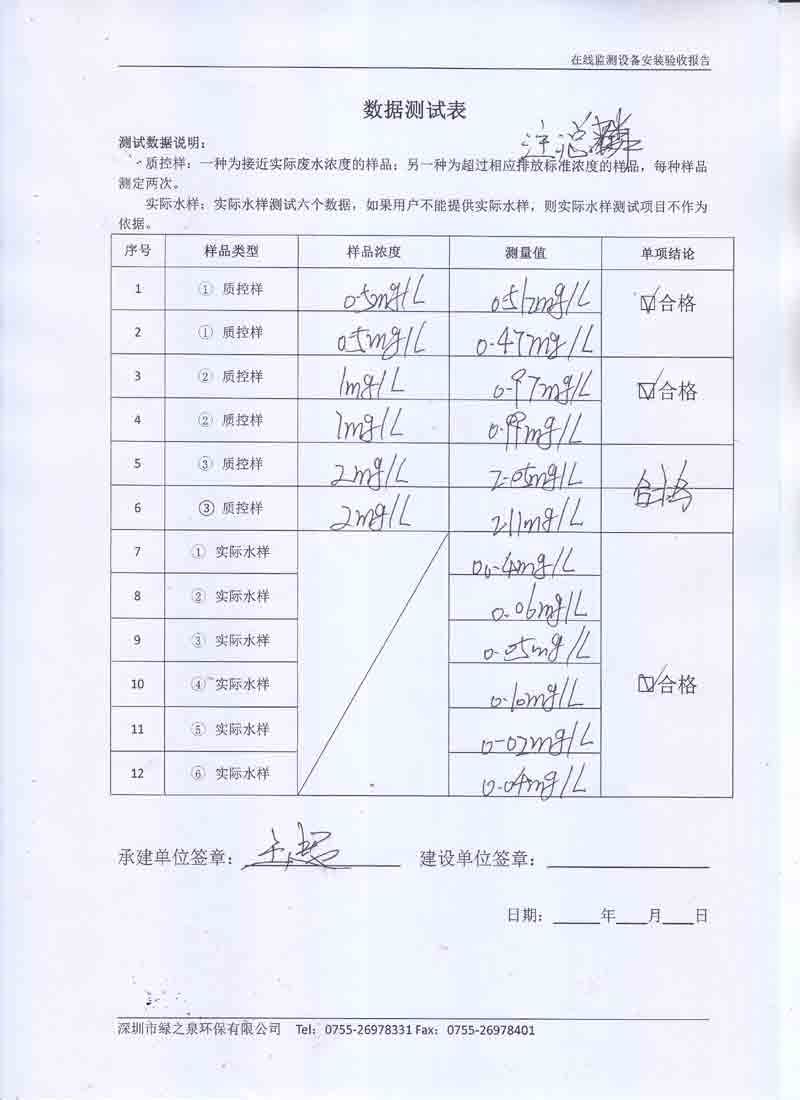 在线监测设备安装验收报告
数据测试表
注 总
测试数据说明：
质控样：一种为接近实际废水浓度的样品；另一种为超过相应排放标准浓度的样品，每种样品
测定两次。
实际水样：实际水样测试六个数据，如果用户不能提供实际水样，则实际水样测试项目不作为
依据。
序号 样品类型 样品浓度 测量值 单项结论
1 ① 质控样 0.5mg/L 0.512mg/L ☑合格
2 ① 质控样 0.5mg/L 0.47mg/L
3 ② 质控样 1mg/L 0.97mg/L ☑合格
4 ② 质控样 1mg/L 0.99mg/L
5 ③ 质控样 2mg/L 2.05mg/L 合格
6 ③ 质控样 2mg/L 2.11mg/L
7 ① 实际水样
8 ② 实际水样 0.06mg/L
9 ③ 实际水样 0.05mg/L
10 ④ 实际水样 0.10mg/L ☑合格
11 ⑤ 实际水样 0.02mg/L
12 ⑥ 实际水样 0.04mg/L
承建单位签章： 建设单位签章：
日期： 年 月 日
深圳市绿之泉环保有限公司 Tel：0755-26978331 Fax：0755-26978401